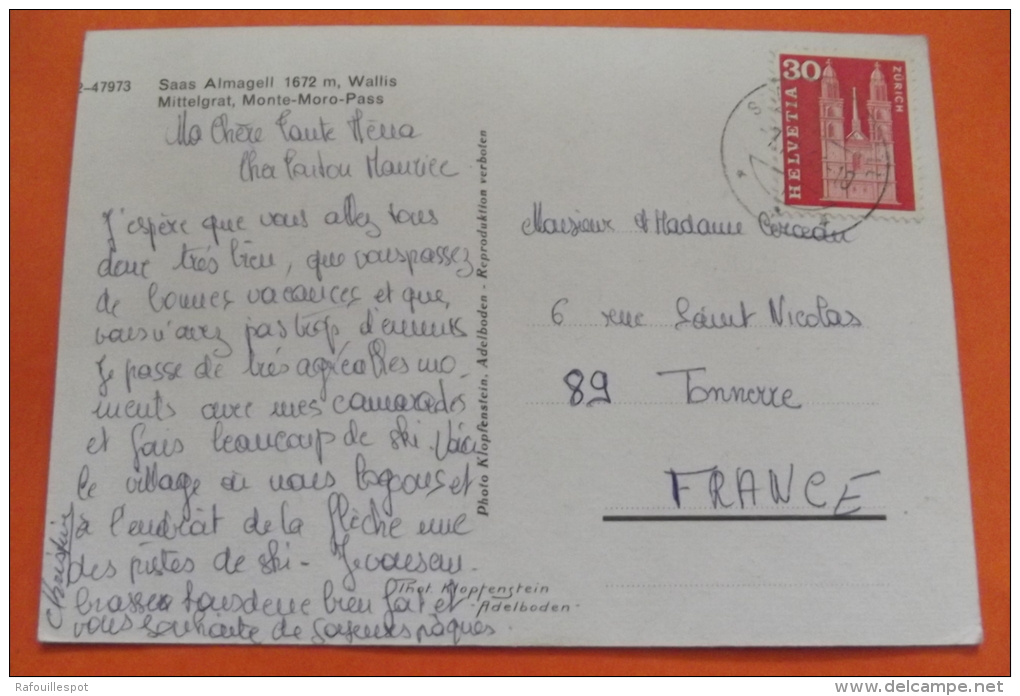 2-47973 Saas Almagell 1672 m, Wallis
Mittelgrat, Monte-Moro-Pass
Ma Chère Tante Héna
Cher Tonton Maurice
J'espère que vous allez tous
deux très bien, que vous passez
de bonnes vacances et que
vous n'avez pas trop d'ennuis
Je passe de très agréables mo-
ments avec mes camarades
et fais beaucoup de ski. Voici
le village où nous logeons et
à l'endroit de la flèche une
des pistes de ski - Je vous em-
brasse tous deux bien fort et
vous souhaite de joyeuses pâques.
Christine
Photo Klopfenstein, Adelboden - Reproduktion verboten
Thor Klopfenstein
- Adelboden -
30
HELVETIA
ZÜRICH
Monsieur & Madame
6 rue Saint Nicolas
89 Tonnerre
FRANCE
Rafouillespot
www.delcampe.net